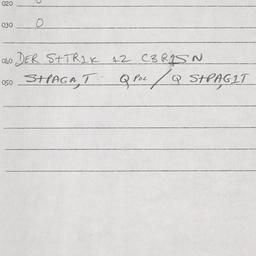 020
030 0
040 DER S+TR1K 12 C3R15N
050 S+PAGA,T Q POC / Q S+PAG1T